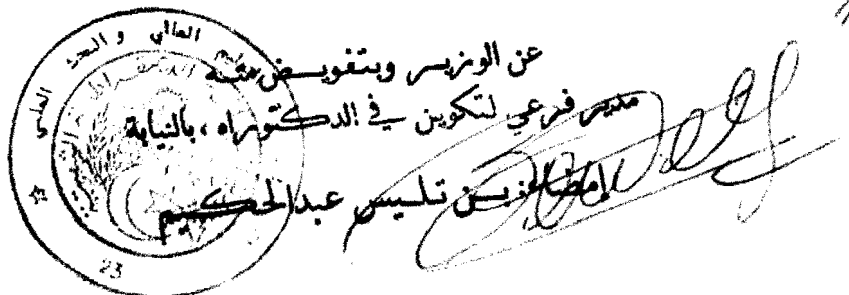 عن الوزير وبتفويض منه
مدير فرعي لتكوين في الدكتوراه ، بالنيابة
إمضاء: بن تليس عبد الحكيم
العالي و البحث العلمي
23